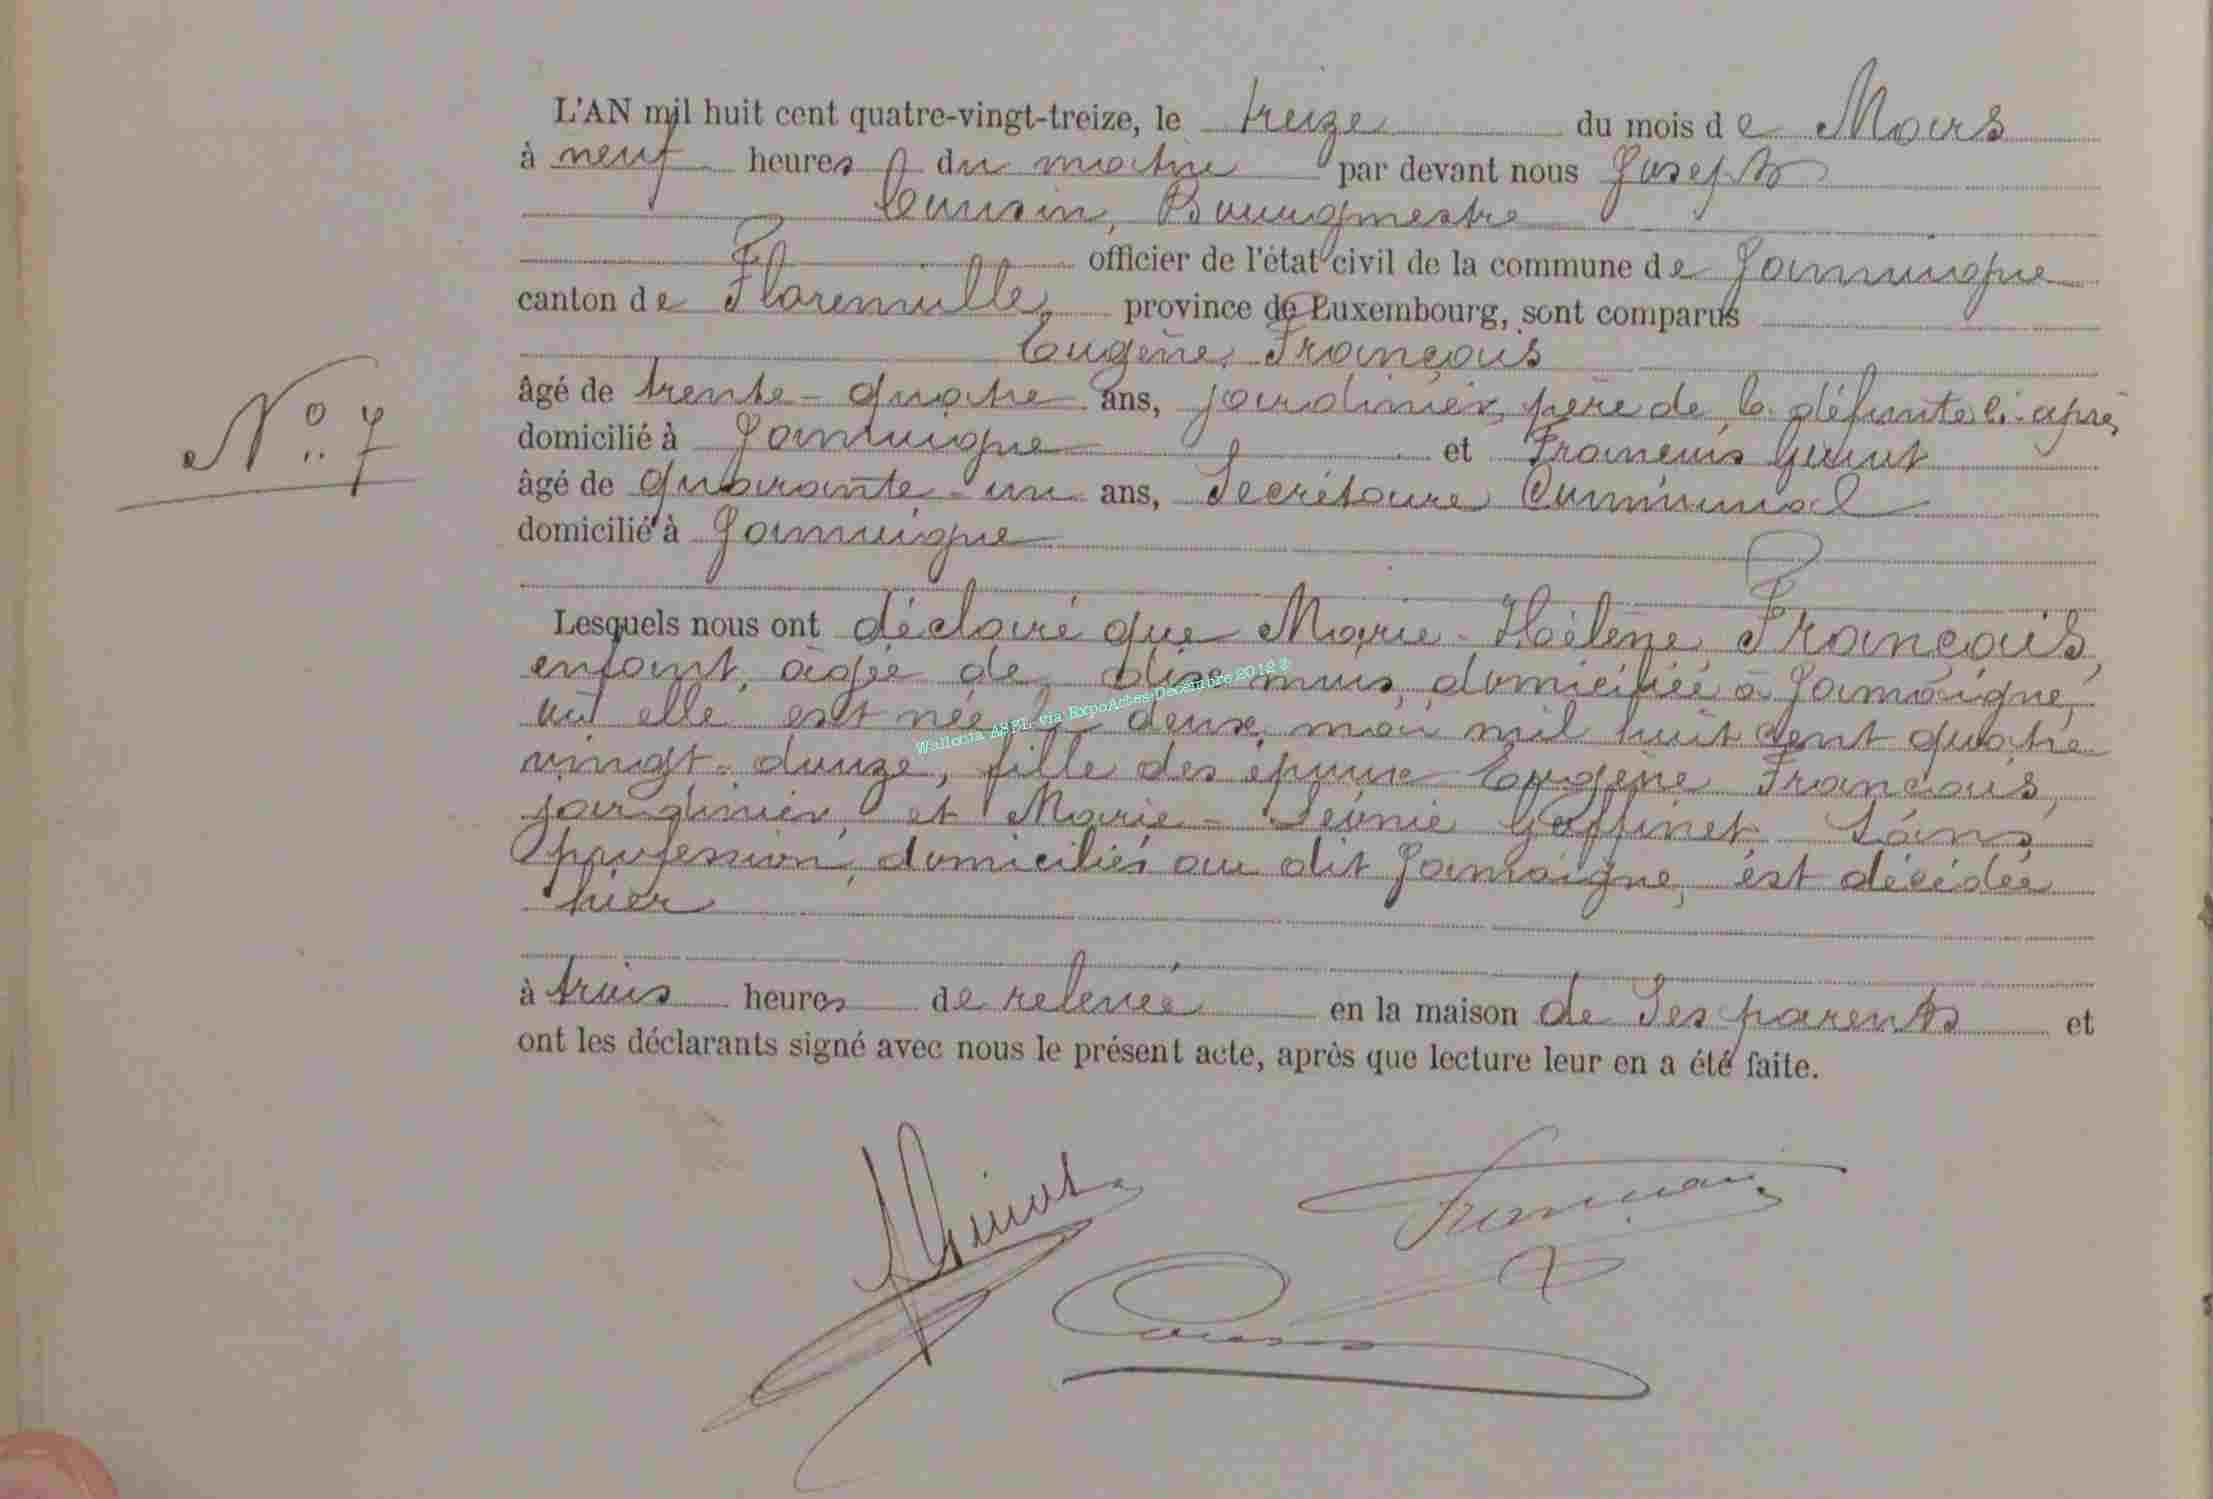 L'AN mil huit cent quatre-vingt-treize, le treize du mois de Mars
à neuf heures du matin par devant nous Joseph
Cousin, Bourgmestre
officier de l'état civil de la commune de Jamoigne
canton de Florenville, province de Luxembourg, sont comparus
Eugène François
âgé de trente-quatre ans, jardinier, père de la défunte ci-après
domicilié à Jamoigne et François Guiot
N° 7
âgé de quarante-un ans, Secrétaire Communal
domicilié à Jamoigne
Lesquels nous ont déclaré que Marie-Hélène François,
enfant, âgée de dix mois, domiciliée à Jamoigne,
où elle est née le deux mai mil huit cent quatre
vingt-douze, fille des époux Eugène François,
jardinier, et Marie-Léonie Goffinet, sans
profession, domiciliés au dit Jamoigne, est décédée
hier
Wallonia ASBL via ExpoActes-Décembre 2012
à trois heures de relevée en la maison de Ses parents et
ont les déclarants signé avec nous le présent acte, après que lecture leur en a été faite.
Guiot
François